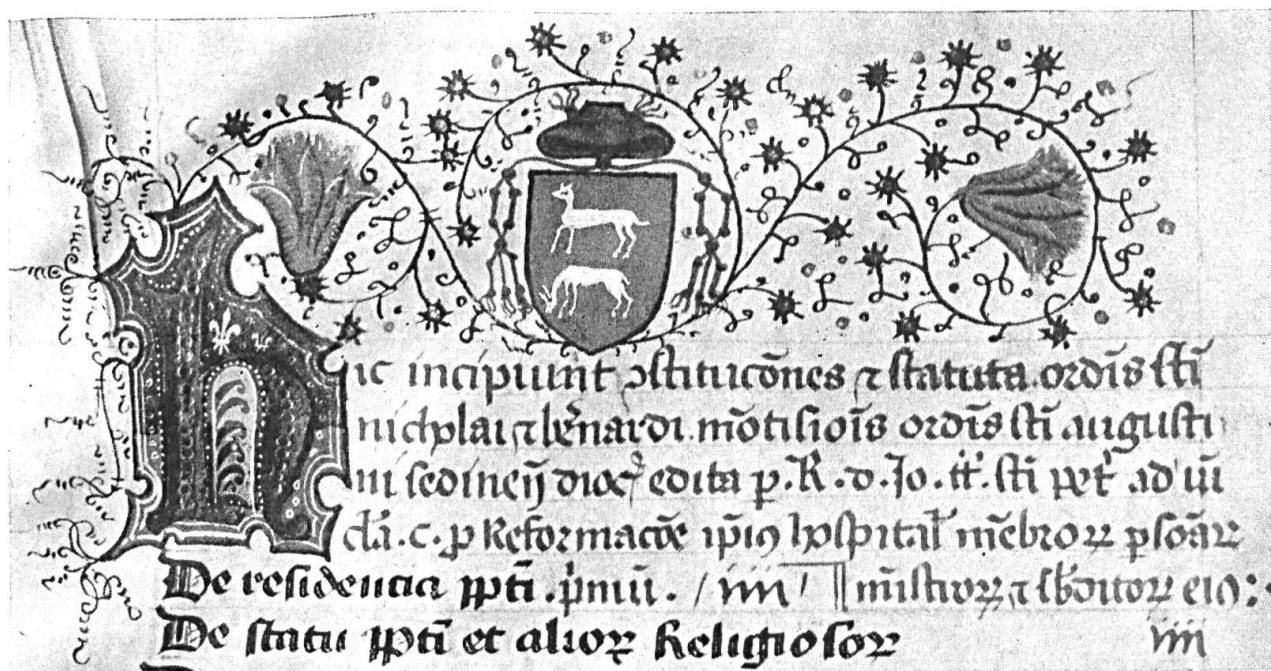 Hic incipiunt ↄstitucōnes ⁊ statuta ordīs sti̅
nicholai ⁊ b̅nardi mōtisiōis ordīs sti̅ augusti
ni sedineñ dioc̅ edita p̱ .R. d. Jo. tt̅. sti̅ pet̅ ad ui̅
cl̅a .c. p̱ Reformacōe ip̅iꝯ hospital̅ mēbroꝝ p̱soāꝝ
De residencia pp̅ti .p̅mū. / iiii ¶ mīstroꝝ ⁊ sb̅ditoꝝ eiꝯ:
De statu pp̅ti et alioꝝ Religiosoꝝ iiii